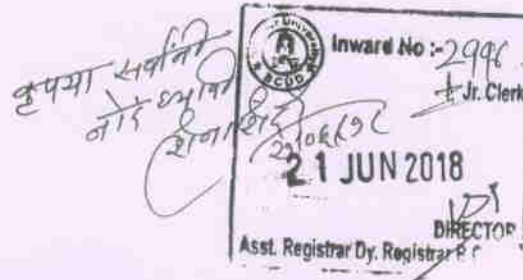 कृपया सर्वांनी
नोंद घ्यावी
Inward No :- 2996
Jr. Clerk
BCUD
21 JUN 2018
DIRECTOR
Asst. Registrar Dy. Registrar